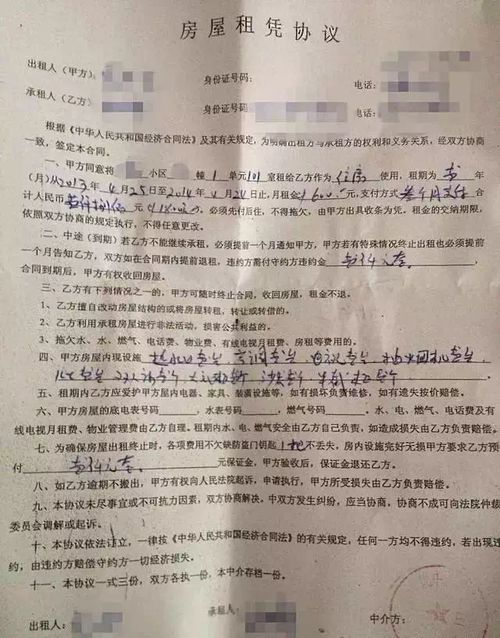 房屋租凭协议
出租人（甲方）： 身份证号码： 电话：
承租人（乙方） 身份证号码： 电话：
根据《中华人民共和国经济合同法》及其有关规定，为明确出租方与承租方的权利和义务关系，经双方协商
一致，签定本合同。
一、甲方同意将 小区 幢1单元101室租给乙方作为住房 使用，租期为 年
（月）从2013年4月25日至2014年4月24日止，月租金1600 ，支付方式 合
计人民币 ，必须先付后住，不得拖欠，由甲方出具收条为凭。租金的交纳期限，
依照双方协商的规定执行，不得任意更改。
二、中途（到期）若乙方不能继续承租，必须提前一个月通知甲方，甲方若有特殊情况终止出租也必须提前
一个月告知乙方，双方如在合同期内提前退租，违约方需付守约方违约金
合同到期后，甲方有权收回房屋。
三、乙方有下列情况之一的，甲方可随时终止合同，收回房屋，租金不退。
1、乙方擅自改动房屋结构的或将房屋转租，转让或转借的。
2、乙方利用承租房屋进行非法活动，损害公共利益的。
3、拖欠水、水、燃气、电话费、物业费、有线电视月租费、房租等费用的。
四、甲方房屋内现设施
五、租期内乙方应爱护甲方屋内电器、家具、装潢设施等，如有损坏负责维修，如有遗失按价赔偿。
六、甲方房屋的底电表号码 ，水表号码 ，燃气号码 ，水、电、燃气、电话费及有
线电视月租费、物业管理费由乙方自理。租期内水、电、燃气安全由乙方自己负责，如造成损失由乙方负责赔偿。
七、为确保房屋出租终止时，各项费用不欠缺防盗门钥匙1把不丢失，房内设施完好无损甲方要求乙方预
付 元保证金，甲方验收后，保证金退还乙方。
八、如乙方逾期不搬出，甲方有权向人民法院起诉，申请执行，甲方所受损失由乙方负责赔偿。
九、本协议未尽事宜或不可抗力因素，双方协商解决。中双方发生纠纷，应当协商，协商不成可向法院仲裁
委员会调解或起诉。
十、本协议依法订立，一律按《中华人民共和国经济合同法》的有关规定，任何一方均不得违约，若出现违
约，由违约方赔偿守约方一切经济损失。
十一、本协议一式三份，双方各执一份，本中介存档一份。
出租人： 承租人： 中介方：